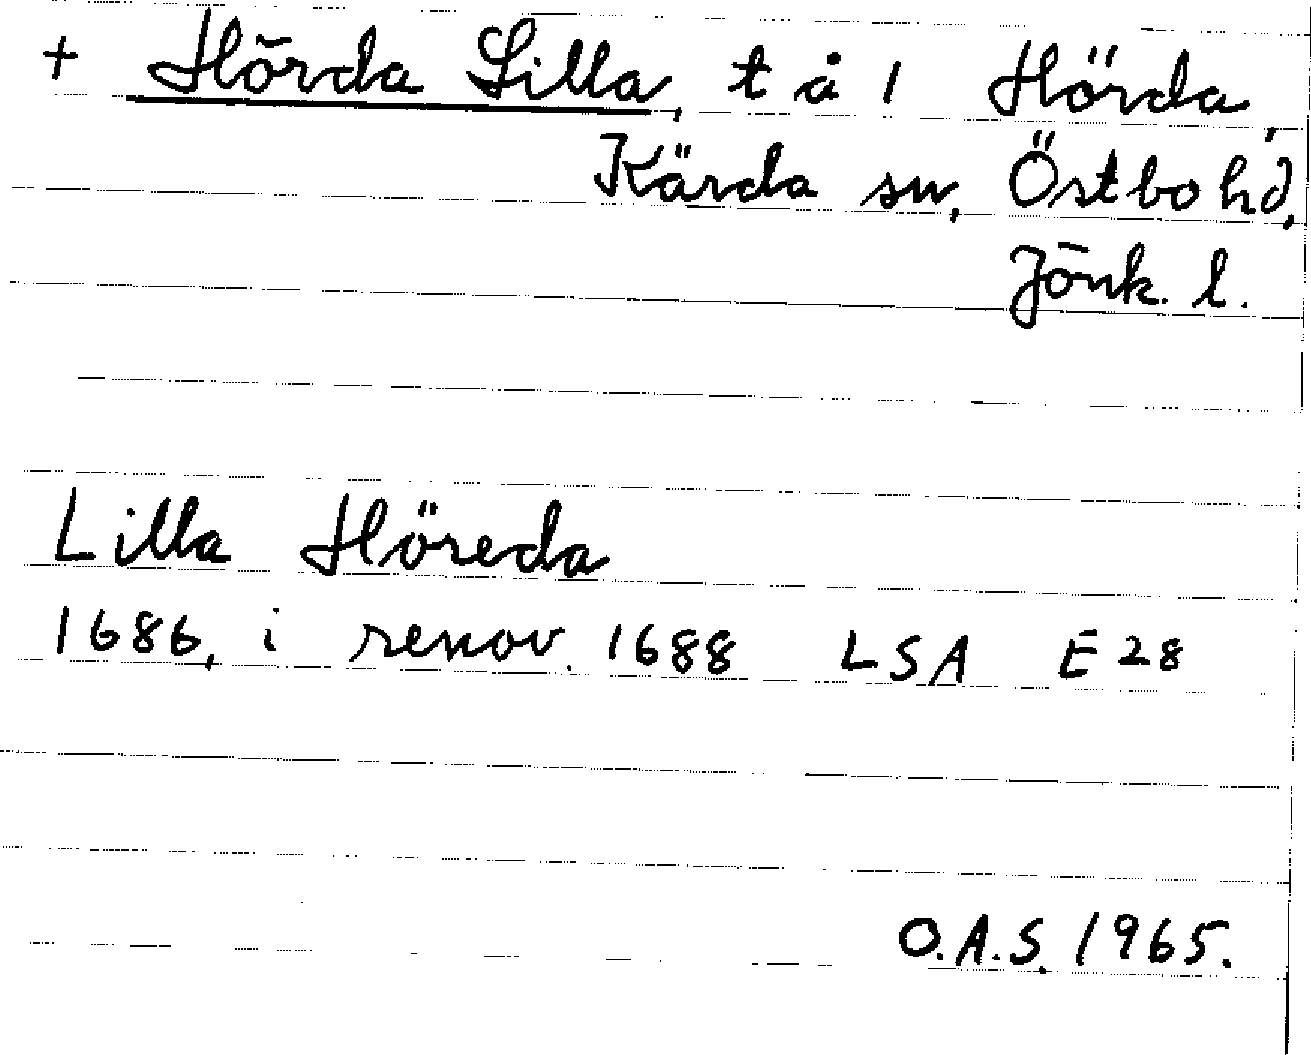 + Hörda Lilla, t å 1 Hörda,
Kärda sn, Östbo hd,
Jönk. l.
Lilla Höreda
1686, i renov. 1688 LSA E28
O.A.S. 1965.